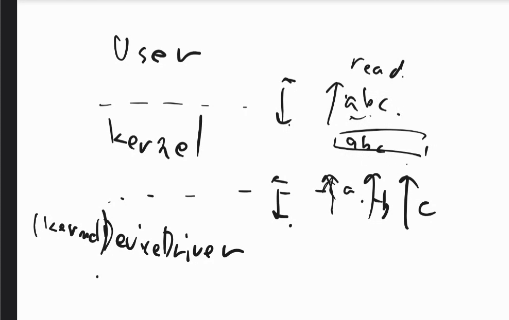 User
read
abc.
kernel
abc
a. b c
(kernel) DeviceDriver